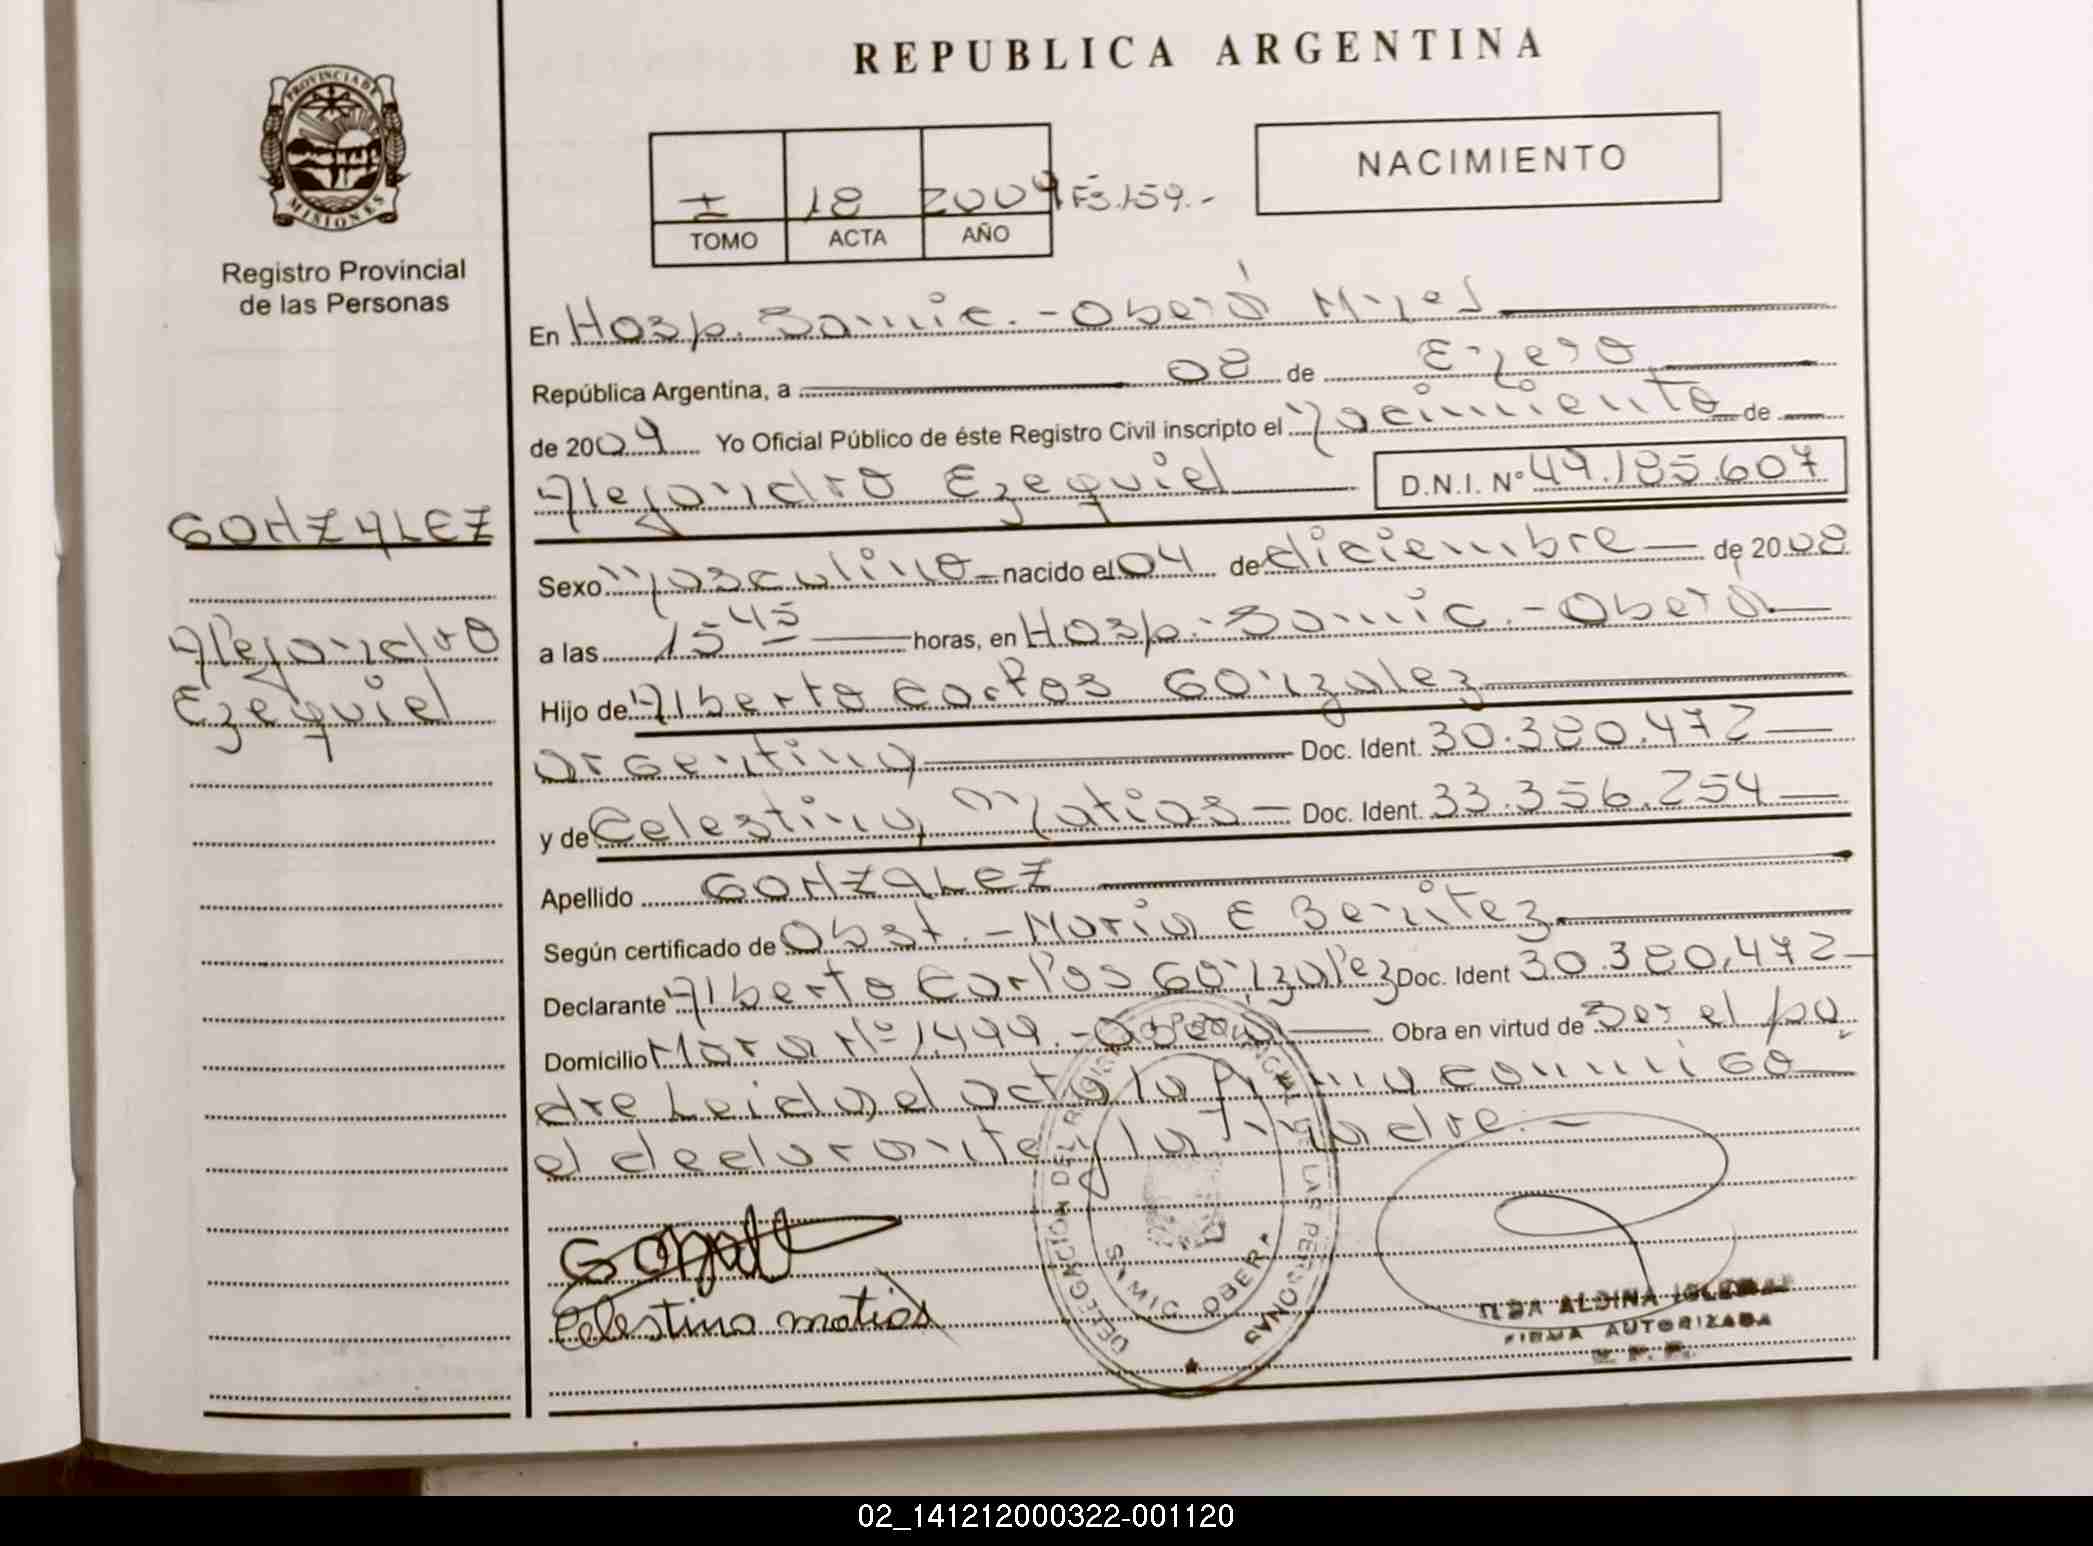 REPUBLICA ARGENTINA
PROVINCIA DE MISIONES
Registro Provincial
de las Personas
I 18 2009 Fs.159.-
TOMO ACTA AÑO
NACIMIENTO
En Hosp. Samic. - Oberá Mnes
República Argentina, a 08 de Enero
de 2009 Yo Oficial Público de éste Registro Civil inscripto el Nacimiento de
Alejandro Ezequiel D.N.I. Nº 49.185.607
GONZALEZ
Alejandro
Ezequiel
Sexo Masculino nacido el 04 de diciembre de 2008
a las 15 45 horas, en Hosp. Samic. - Oberá
Hijo de Alberto Carlos Gonzalez
argentino Doc. Ident. 30.380.472
y de Celestina Matias Doc. Ident. 33.356.254
Apellido GONZALEZ
Según certificado de Obst. - Maria E Benitez
Declarante Alberto Carlos Gonzalez Doc. Ident 30.380.472
Domicilio Mora Nº 1499.- Oberá Obra en virtud de ser el pa
dre Leida el acta la firma conmigo
el declarante y la madre.-
Celestina matias
DELEGACION DEL REGISTRO PROVINCIAL DE LAS PERSONAS
OBERA
ILDA ALDINA
FIRMA AUTORIZADA
02_141212000322-001120